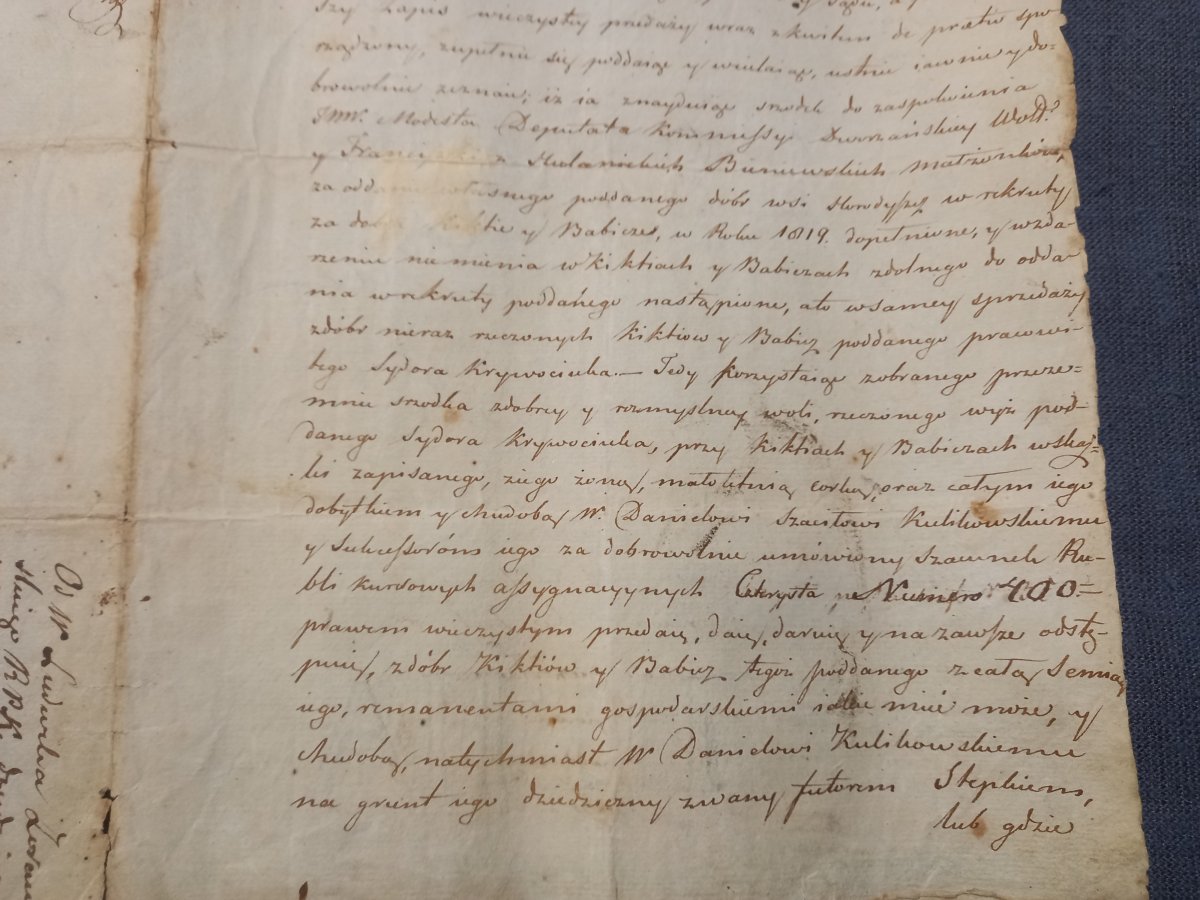 szy Zapis wieczysty przedaży wraz z kwitem de pretio spo-
rządzony, zupełnie się poddaiąc y wcielaiąc, ustnie iawnie y do-
browolnie zeznaię; iż ia znayduiąc srzodek do zaspokoienia
JWW. Modesta Deputata Kommissyi Dworzańskiey Woł.
y Franciszki z Hulanickich Bieniewskich małżonków,
za oddanie własnego poddanego dóbr wsi Horodyszcz w rekruty
za dobra Kiktie y Babicze, w Roku 1819. dopełnione, y w zda-
rzeniu nie mienia w Kiktiach y Babiczach zdolnego do odda-
nia w rekruty poddanego nastąpione, a to w samey sprzedaży
z dóbr nieraz rzeczonych Kiktiow y Babicz poddanego pracowi-
tego Sydora Krywociuka.— Tedy korzystaiąc z obranego przeze=
mnie srzodka z dobrey y rozmyslney woli, rzeczonego wyż pod-
danego Sydora Krywociuka, przy Kiktiach y Babiczach w skaz=
ki zapisanego, z iego żoną, małoletnią corką, oraz całym iego
dobytkiem y chudobą W. Danielowi Kulikowskiemu
y Sukcessoróm iego za dobrowolnie umówiony szacunek Ru-
bli kursowych assygnacyynych Czterysta Numero 400=
prawem wieczystym przedaię, daię, daruię y na zawsze odstę-
puię, z dóbr Kiktiów y Babicz tegoż poddanego z całą Semią
iego, remanentami gospodarskiemi iakie mieć może, y
chudobą, natychmiast W Danielowi Kulikowskiemu
na grunt iego dziedziczny zwany futorem
lub gdzie
Os W Ludwika